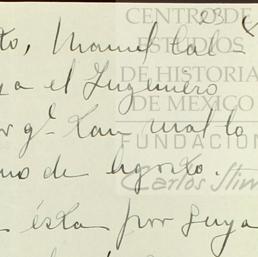 23
to, Manuel Cal-
ya el Ingeniero
or qᵉ tan mal lo
mo de Agosto.
esta por cuya
CENTRO DE
ESTUDIOS
DE HISTORIA
DE MEXICO
FUNDACIÓN
Carlos Slim